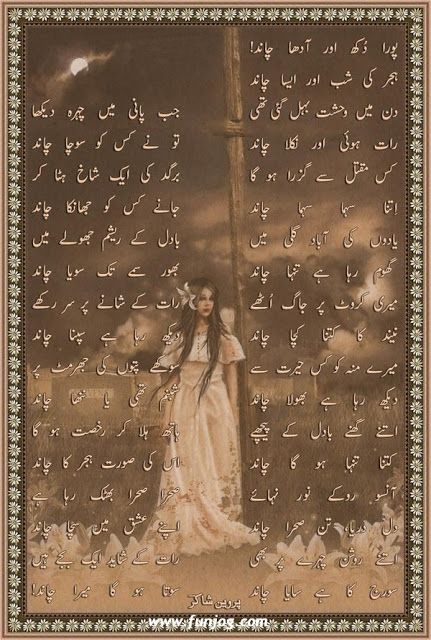 پورا دُکھ اور آدھا چاند!
ہجر کی شب اور ایسا چاند
دن میں وحشت بہل گئی تھی
رات ہوئی اور نکلا چاند
کس مقتل سے گزرا ہو گا
اِتنا سہما سہما چاند
یادوں کی آباد گلی میں
گھوم رہا ہے تنہا چاند
میری کروٹ پر جاگ اُٹھے
نیند کا کتنا کچا چاند
میرے منہ کو کس حیرت سے
دیکھ رہا ہے بھولا چاند
اتنے گھنے بادل کے پیچھے
کتنا تنہا ہو گا چاند
آنسو روکے نور نہائے
دل دریا، تن صحرا چاند
اتنے روشن چہرے پر بھی
سورج کا ہے سایا چاند
جب پانی میں چہرہ دیکھا
تو نے کس کو سوچا چاند
برگد کی ایک شاخ ہٹا کر
جانے کس کو جھانکا چاند
بادل کے ریشم جھولے میں
بھور سمے تک سویا چاند
رات کے شانے پر سر رکھے
دیکھ رہا ہے سپنا چاند
سوکھے پتوں کی جھرمٹ پر
شبنم تھی یا ننھا چاند
ہاتھ ہلا کر رخصت ہو گا
اس کی صورت ہجر کا چاند
صحرا صحرا بھٹک رہا ہے
اپنے عشق میں سچا چاند
رات کے شاید ایک بجے ہیں
سوتا ہو گا میرا چاند!
پروین شاکر
www.funjog.com